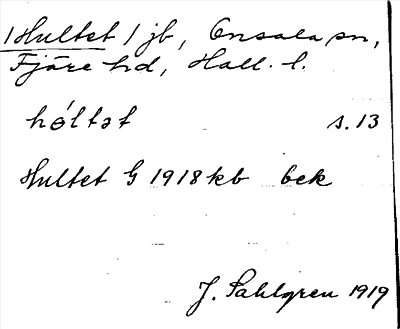 /Hultet/ jb, Onsala sn,
Fjäre hd, Hall. l.
hóltət s. 13
Hultet G 1918 kb bek
J. Sahlgren 1919